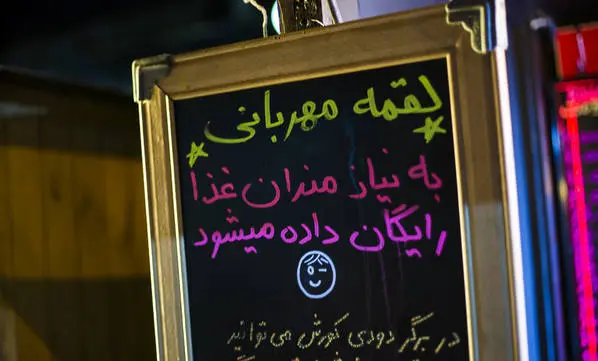 لقمه مهربانی
به نیاز مندان غذا
رایگان داده میشود
در برگر دودی کورش می توانید